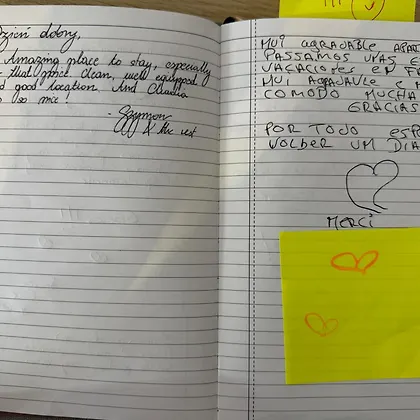 Dzień dobry,
Amazing place to stay, especially
that price clean, well equipped
good location. And Claudia
so nice!
- Szymon
& the rest
MUI AGRADABLE
PASSAMOS UNAS
VACACIONES EN
MUI AGRADAVLE E
COMODO MUCHA
GRACIAS
POR TODO ESP
VOLBER UM DIA
MERCI